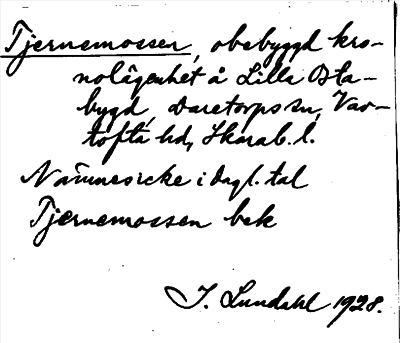 Tjernemossen, obebyggd kro-
nolägenhet å Lilla Bla-
bygd, Daretorps sn, Var-
tofta hd, Skarab. l.
Namnes icke i dagl. tal
Tjernemossen bek
I. Lundahl 1928.